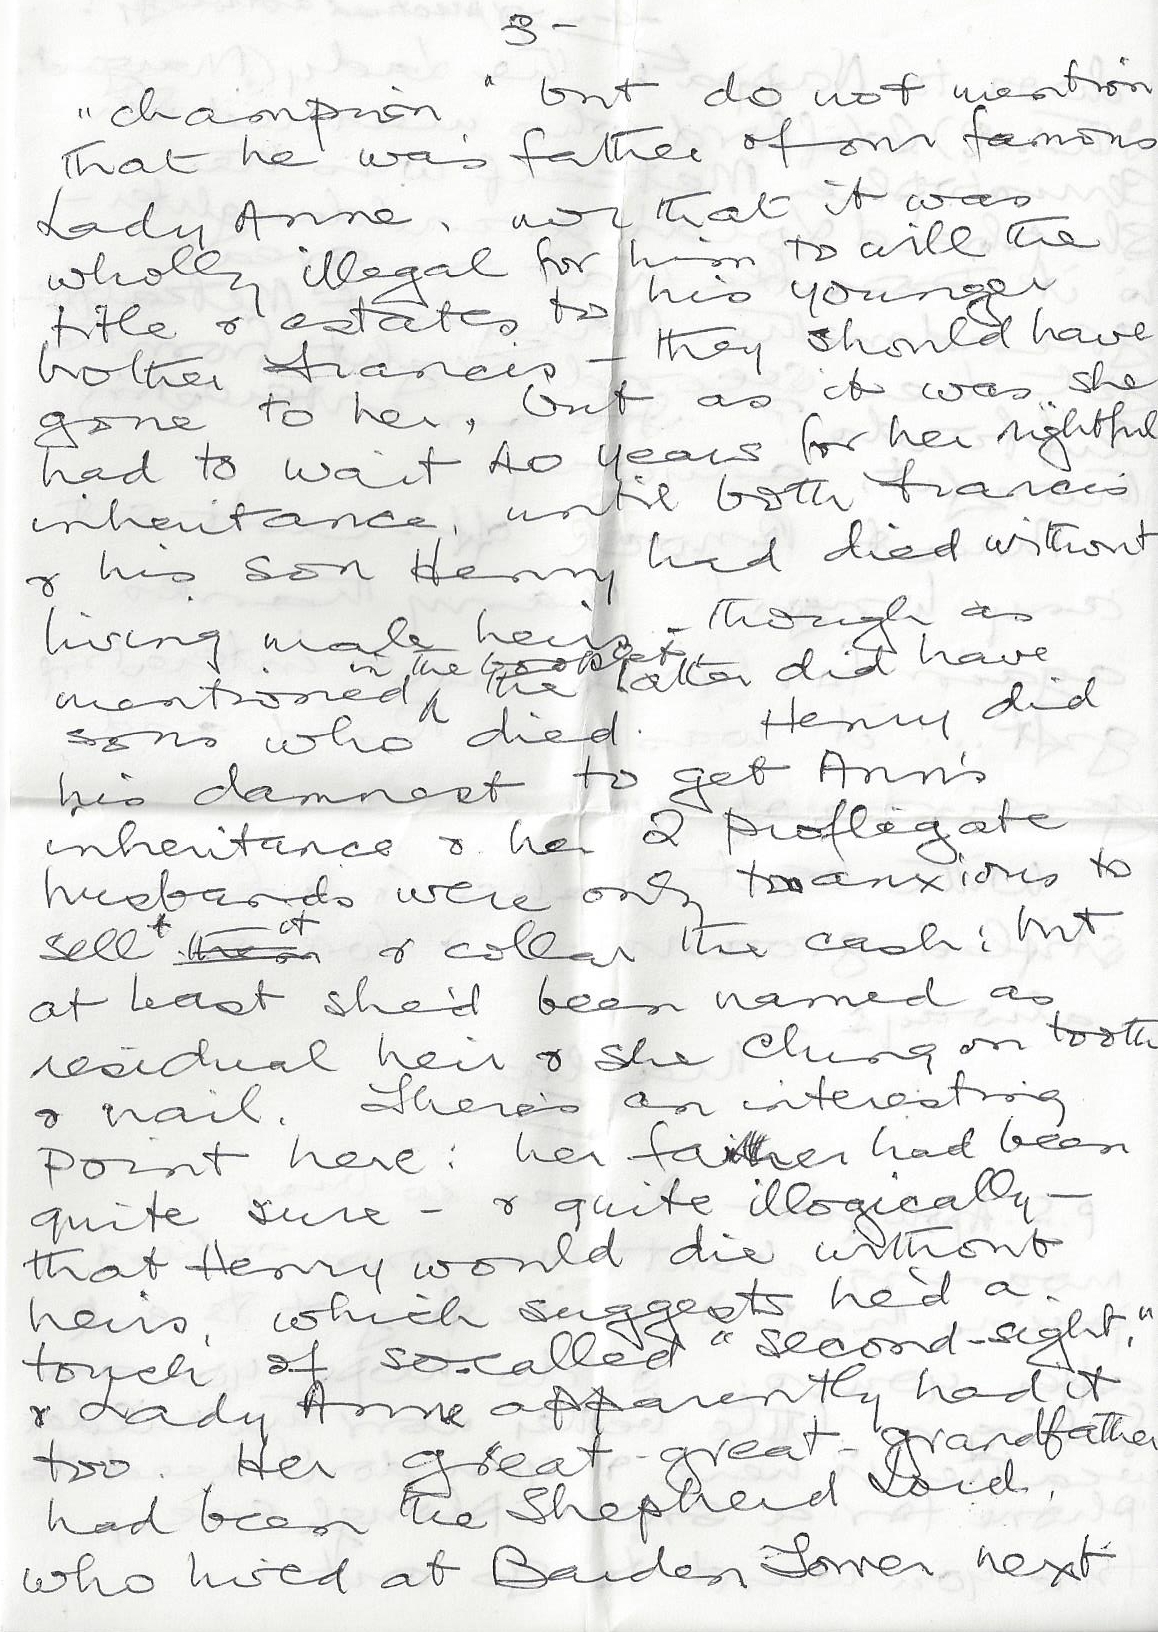 3-
"champion" but do not mention
that he was father of our famous
Lady Anne, nor that it was
wholly illegal for him to will the
title & estates to his younger
brother Francis - they should have
gone to her, but as it was she
had to wait 40 years for her rightful
inheritance, until both Francis
& his son Henry had died without
living male heirs - though as
mentioned in the booklet, the latter did have
sons who died. Henry did
his damnest to get Ann's
inheritance & her 2 profligate
husbands were only too anxious to
sell it & collar the cash: but
at least she'd been named as
residual heir & she clung on tooth
& nail. There's an interesting
point here: her father had been
quite sure - & quite illogically -
that Henry would die without
heirs, which suggests he'd a
touch of so-called "second-sight,"
& Lady Anne apparently had it
too. Her great-great-grandfather
had been the Shepherd Lord,
who lived at Barden Tower next